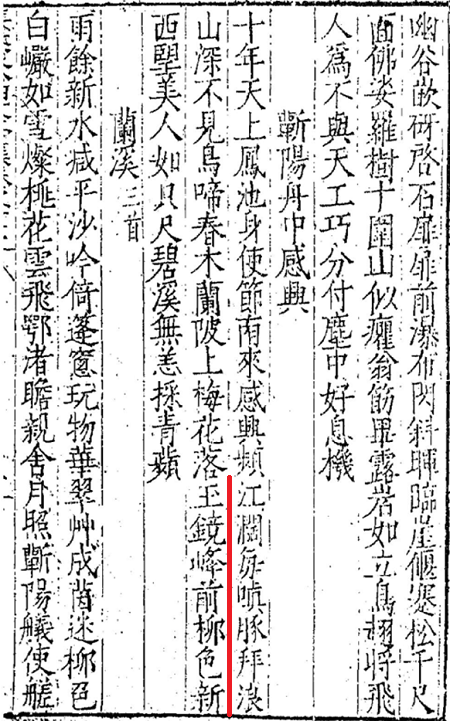 幽谷嵌研啓石扉扉前瀑布閃斜暉臨崖偃蹇松千尺
面佛娑羅樹十圍山似癯翁筋畢露岩如立鳥翅將飛
人爲不與天工巧分付塵中好息機
蘄陽舟中感興
十年天上鳳池身使節南來感興頻江濶每嗔豚拜浪
山深不見鳥啼春木蘭陂上梅花落玉鏡峰前柳色新
西望美人如只尺碧溪無恙採青蘋
蘭溪三首
雨餘新水减平沙吟倚蓬窓玩物華翠艸成茵迷柳色
白巗如雪燦桃花雲飛鄂渚瞻親舍月照蘄陽艤使艖